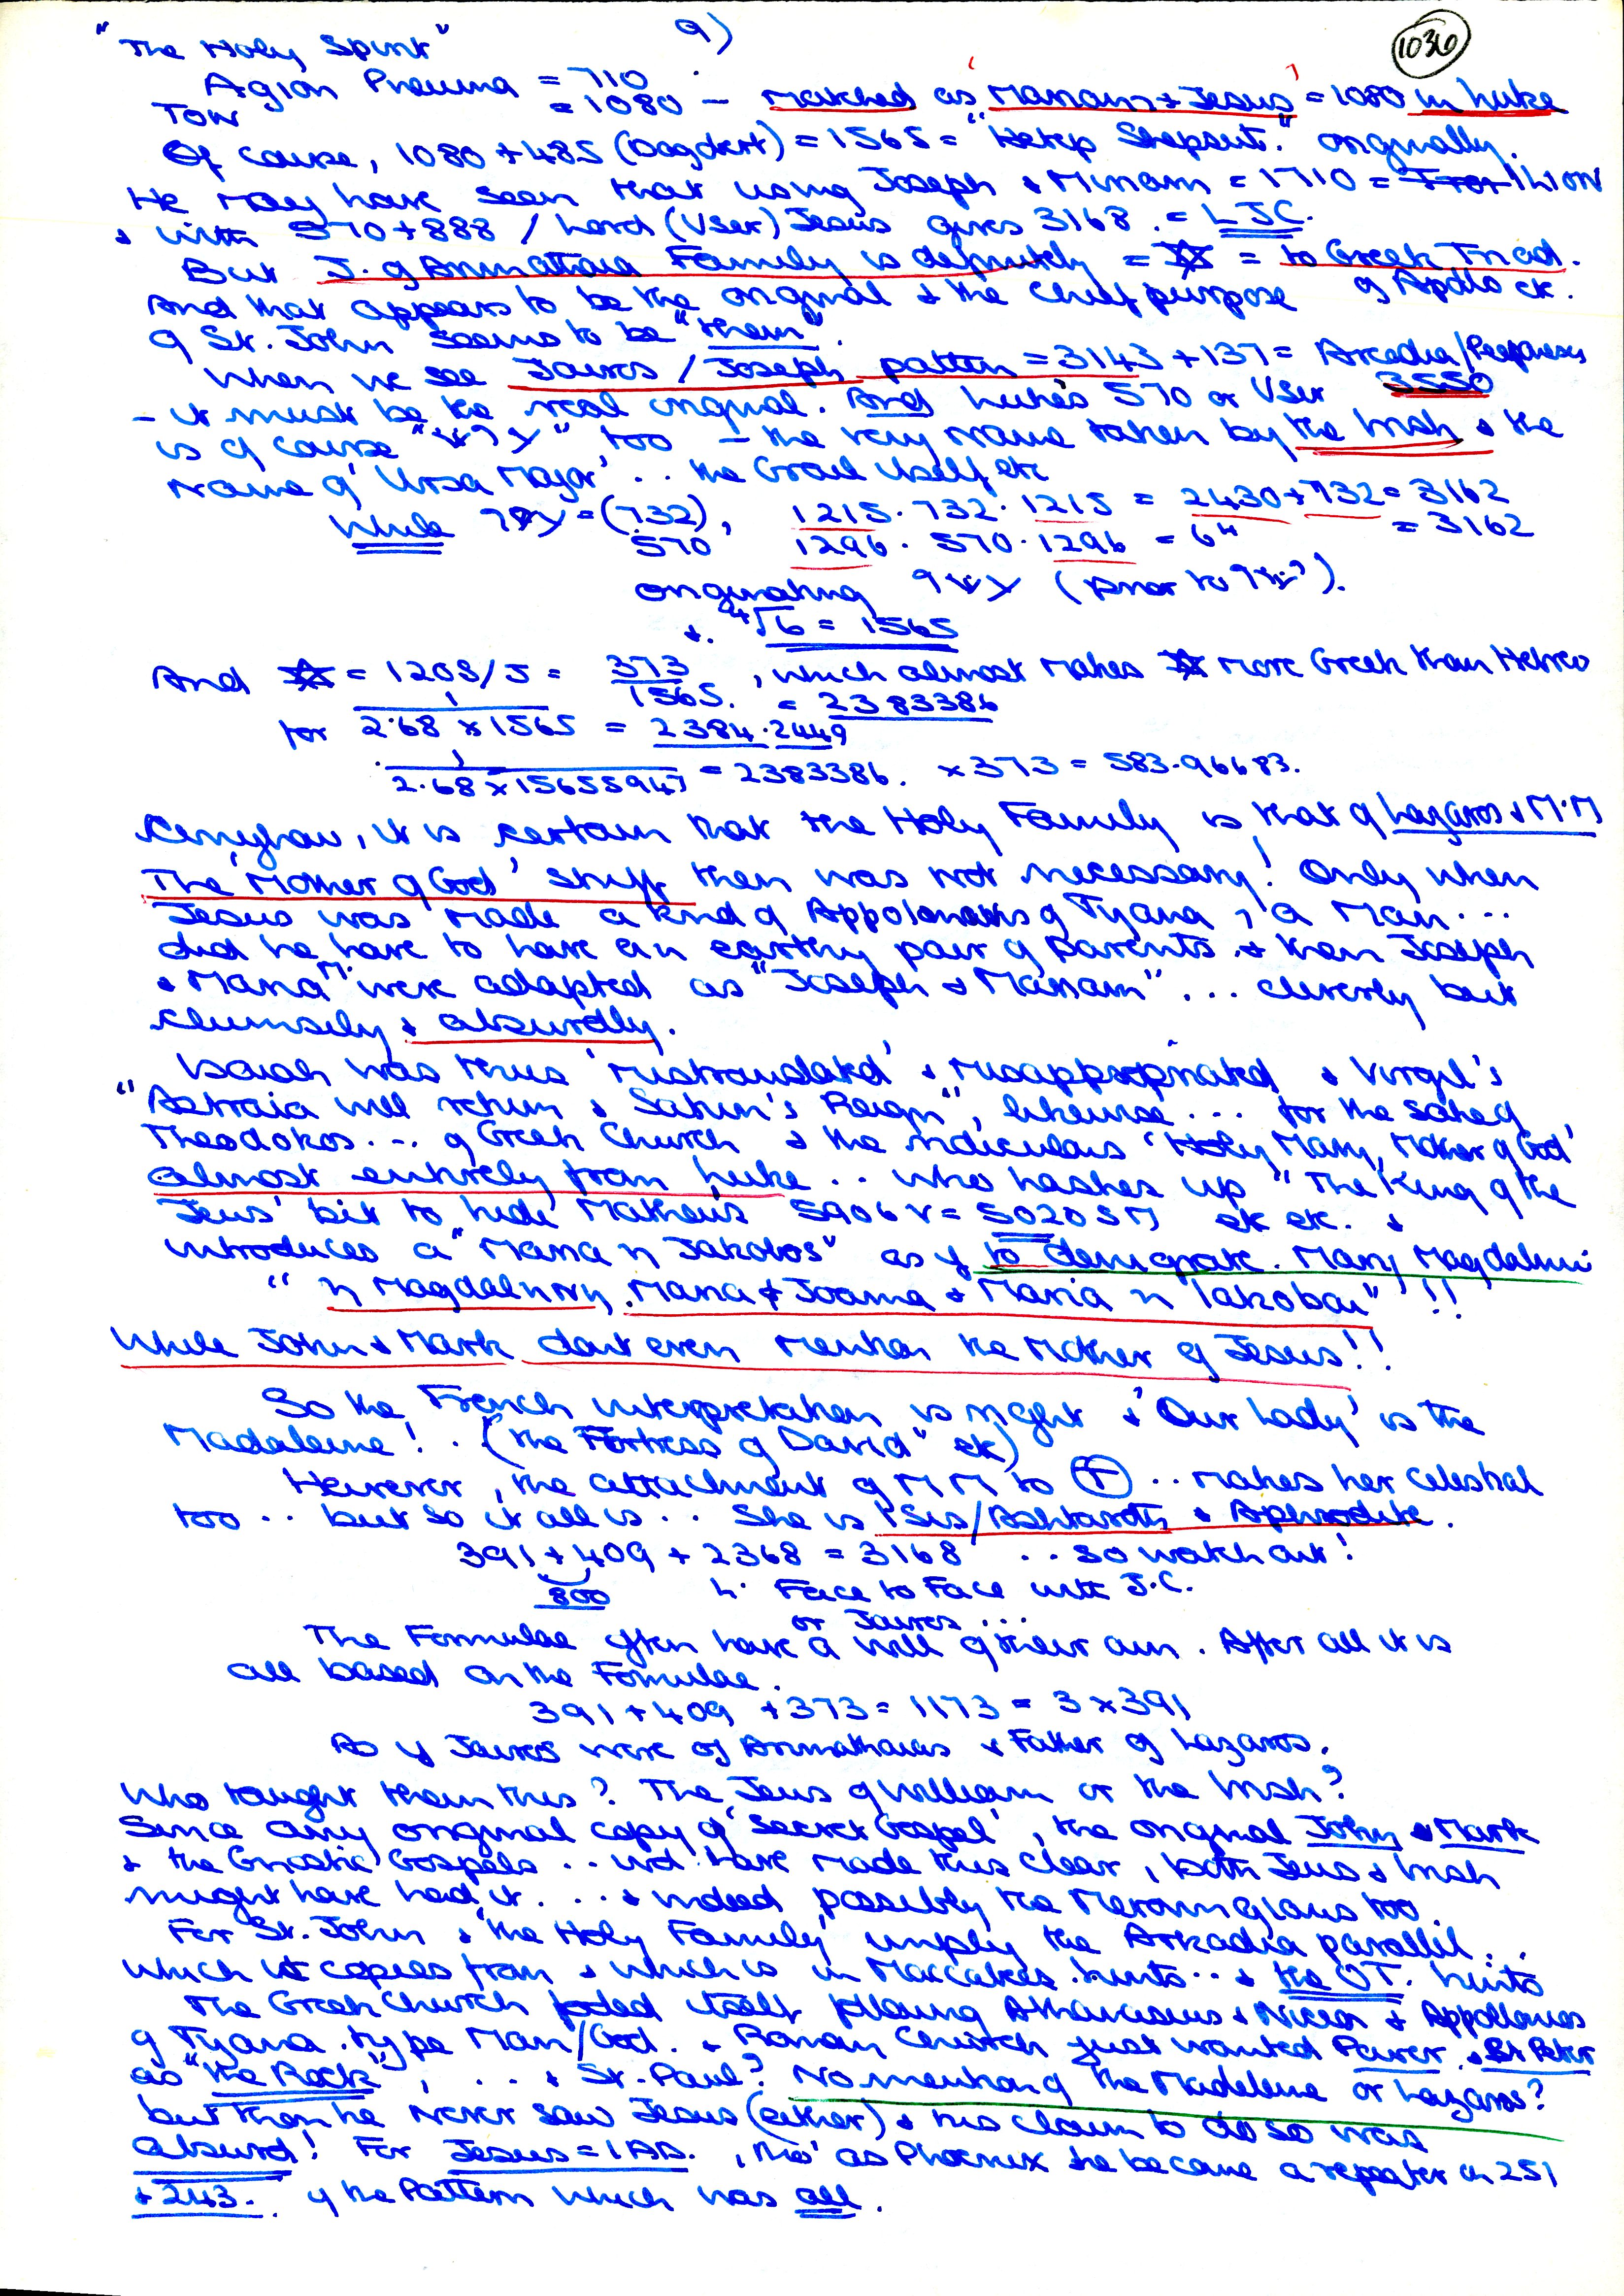 9)
1036
"The Holy Spirit"
Agion Pneuma = 710
TON = 1080 – matched as 'Mariam + Jesus' = 1080 in Luke
Of course, 1080 + 485 (Dagdert) = 1565 = "Hetep Shepsut." originally.
He may have seen that using Joseph & Miriam = 1710 =
& with 570 + 888 / Lord (Vser) Jesus gives 3168. = LJC.
But J. of Arimathaia Family is definitely = ✡ = to Greek Triad.
And that appears to be the original & the chief purpose of Apollo etc.
of St. John seems to be "them".
When we see Jairos / Joseph pattern = 3143 + 137 = Arcadia /
3550
– it must be the real original. And Luke's 570 or Vser
is of course too – the very name taken by the Irish & the
Name of 'Ursa Major' .. the Grail itself etc
While = (732), 1215. 732. 1215 = 2430 + 732 = 3162
570 1296. 570. 1296 = 6⁴ = 3162
originating (prior to ).
&. ⁴√6 = 1565
And ✡ = 1208/5 = 373 / 1565. , which almost makes ✡ more Greek than Hebrew
= 2383386
for 1 / 2.68 x 1565 = 2384.2449
1 / 2.68 x 15655947 = 2383386. x 373 = 583.96683.
Anyhow, it is certain that the Holy Family is that of Lazaros & M.M
The 'Mother of God' stuff then was not necessary! Only when
Jesus was made a kind of Appolonaris of Tyana, a Man ...
did he have to have an earthy pair of parents. & then Joseph
& Maria M. were adapted as "Joseph & Mariam" ... cleverly but
clumsily & absurdly.
Isaiah was thus 'mistranslated' & misappropriated & Virgil's
"Astraia will return & Saturn's Reign", likewise ... for the sake of
Theodokos ... of Greek Church & the ridiculous 'Holy Mary, Mother of God'
almost entirely from Luke .. who hashes up "The King of the
Jews' bit to hide Matheus 5906 v = 50205 M etc etc. &
introduces a "Maria η Jakobos" as if to denigrate. Mary Magdalini
"η Magdalηνη, Maria & Joanna & Maria η Iakobou" !!
While John & Mark don't even mention the Mother of Jesus!!
So the French interpretation is right & 'Our Lady' is the
Madaleine! . (the Fortress of David" etc)
However, the attachment of MM to .. makes her celestial
too .. but so it all is .. She is Isis/Ashtaroth & Aphrodite.
391 + 409 + 2368 = 3168 .. so watch out!
800 Face to Face with J.C.
or Jairos ...
The Formulae often have a will of their own. After all it is
all based on the Formulae.
391 + 409 + 373 = 1173 = 3 x 391
As if Jairos were of Arimathaias & Father of Lazaros.
Who taught them this? The Jews of William or the Irish?
Since any original copy of 'Secret Gospel', the original John & Mark
& the Gnostic Gospels .. wd have made this clear, both Jews & Irish
might have had it. ... & indeed possibly the Merovingians too.
For St. John & 'the Holy Family' imply the Arkadia parallel..
which it copies from & which is in Maccabees hints .. & the OT. hints
The Greek Church itself following Athanasius & Nicea & Appollonos
of Tyana. type Man/God. & Roman Church just wanted Power, & St Peter
as "the Rock", ... & St. Paul? No mention of the Madeleine or Lazaros?
but then he never saw Jesus (either) & his claim to do so was
absurd! For Jesus = 1 AD. , tho' as Phoenix he became a repeater in 251
+ 243. of the Pattern which was all.